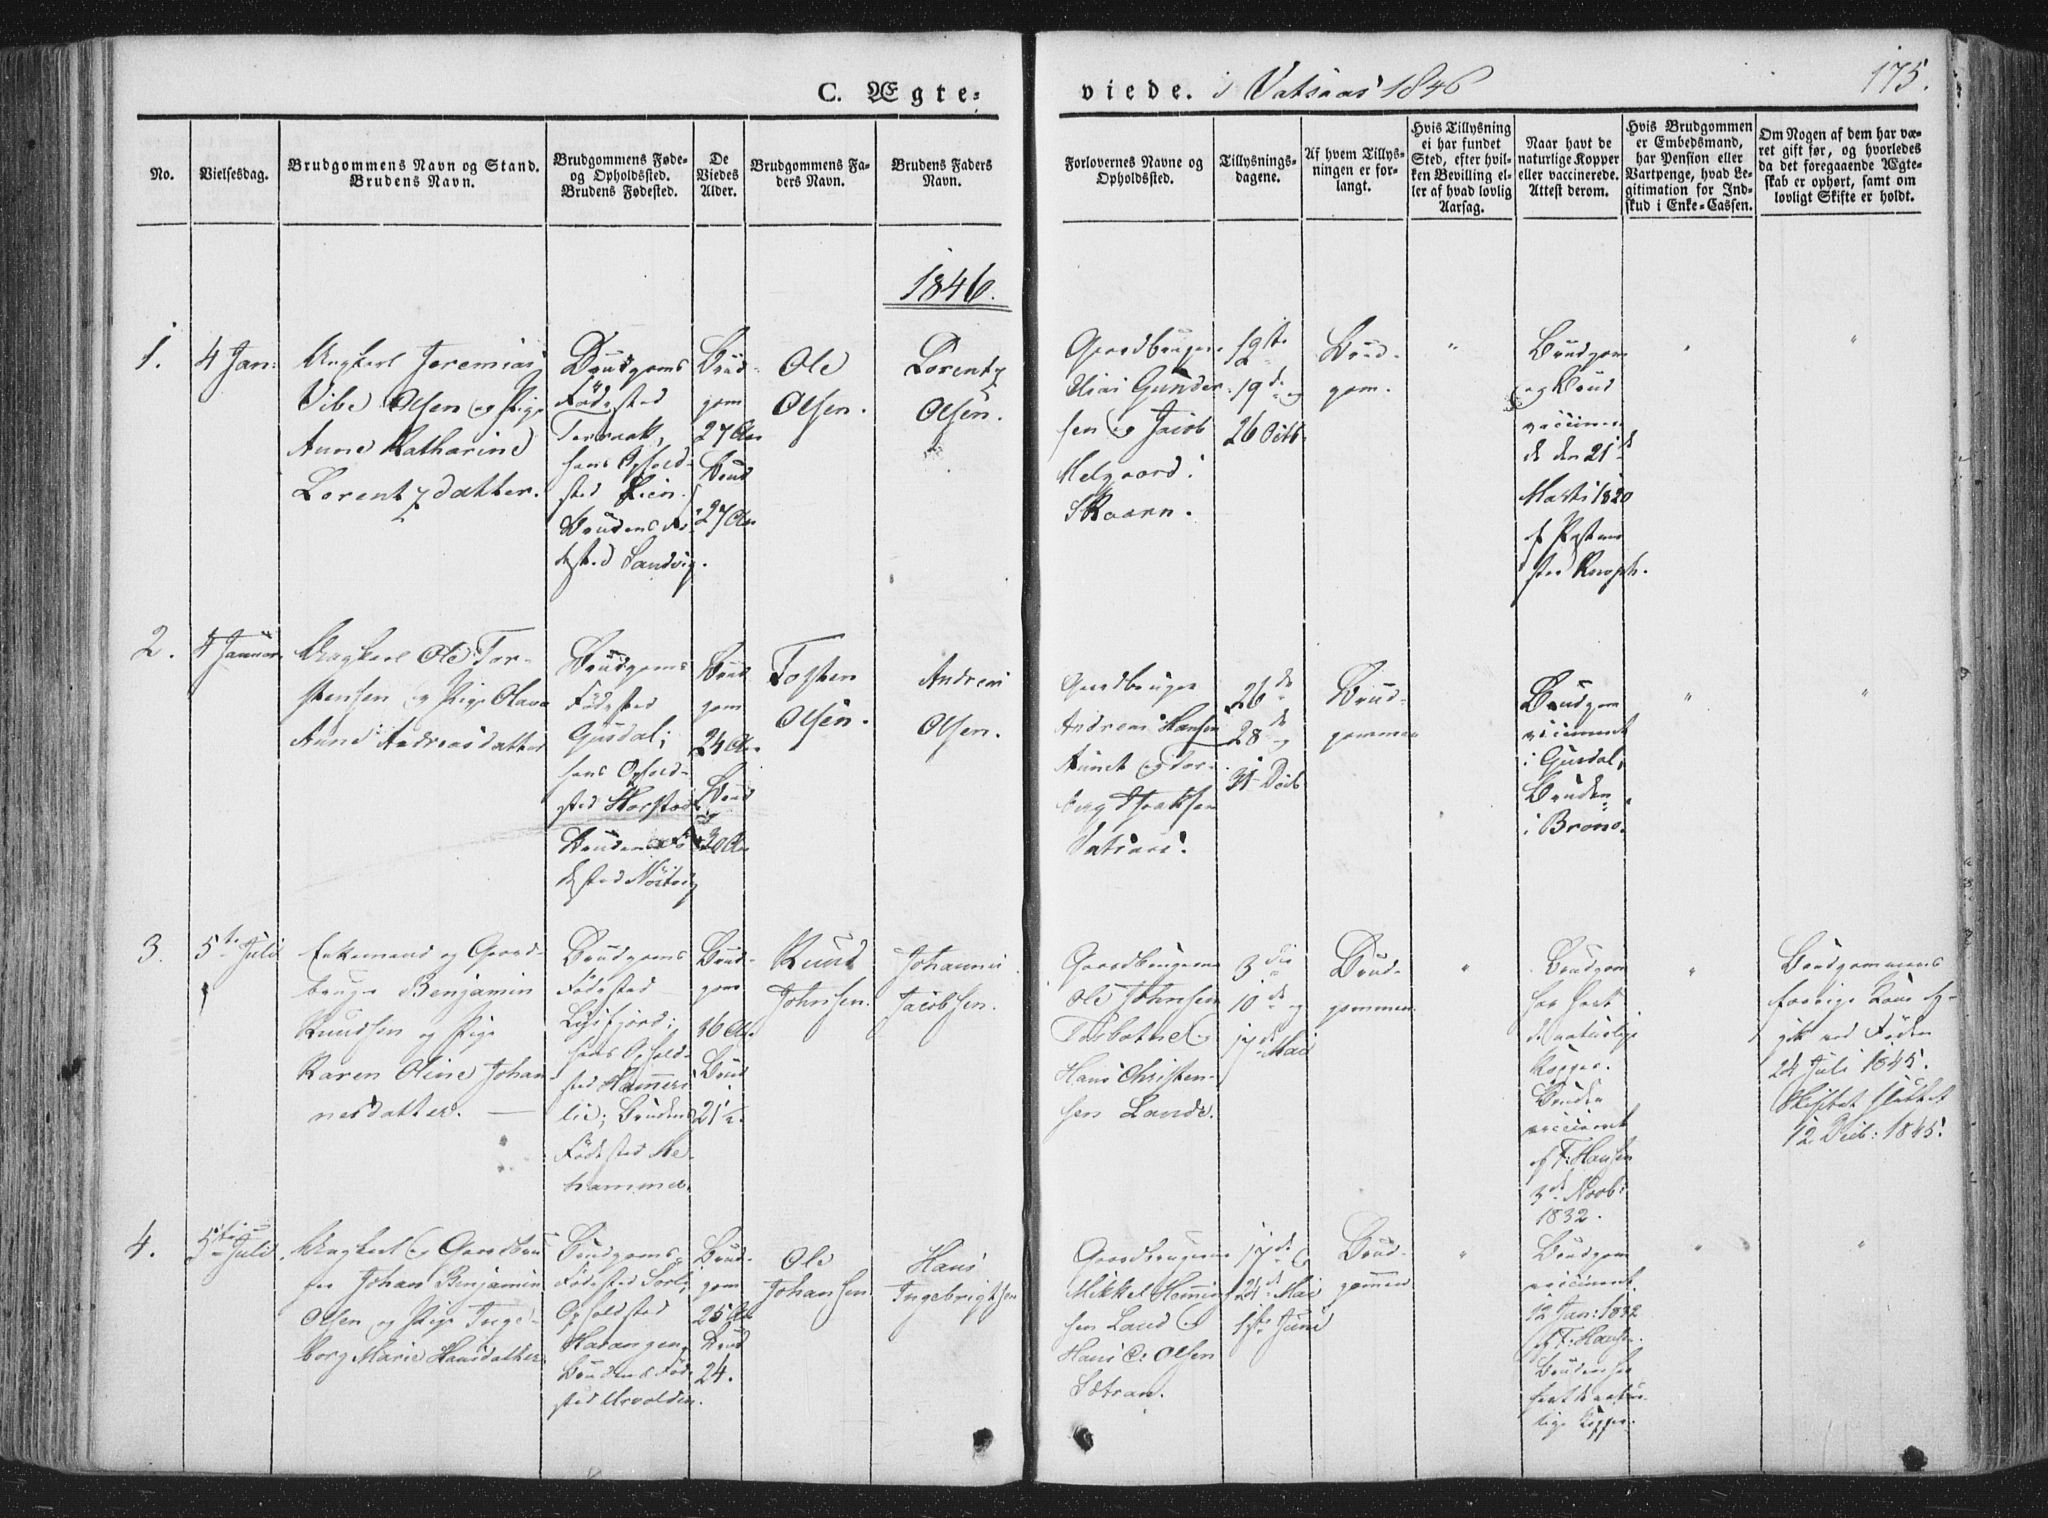 C. Ægte-
viede. i Vatsaas 1846
175.
No.
Vielsesdag.
Brudgommens Navn og Stand.
Brudens Navn.
Brudgommens Føde-
og Opholdssted.
Brudens Fødested.
De
Viedes
Alder.
Brudgommens Fa-
ders Navn.
Brudens Faders
Navn.
Forlovernes Navne og
Opholdssted.
Tillysnings-
dagene.
Af hvem Tillys-
ningen er for-
langt.
Hvis Tillysning
ei har fundet
Sted, efter hvil-
ken Bevilling el-
ler af hvad lovlig
Aarsag.
Naar havt de
naturlige Kopper
eller vaccinerede.
Attest derom.
Hvis Brudgommen
er Embedsmand,
har Pension eller
Vartpenge, hvad Le-
gitimation for Ind-
skud i Enke-Cassen.
Om Nogen af dem har væ-
ret gift før, og hvorledes
da det foregaaende Ægte-
skab er ophørt, samt om
lovligt Skifte er holdt.
1846.
1.
4 Jan:
Ungkarl Jeremias
Vibe Olsen og Pige
Anne Katharine
Lorentzdatter.
Brudgoms
Fødested
Terraak,
hans Ophold-
sted Lien
Brudens Fø-
dested Sandvig.
Brud-
gom
27 Aar
Brud
27 Aar
Ole
Olsen.
Lorentz
Olsen.
Gaardbruger
Elias Gunder-
sen og Jacob
Helgaard
Skaarn.
12te
19de og
26 Octb
Brud-
gom.
"
Brudgom
og Brud
vaccine-
de den 21de
Marts 1820
af Præsten
sted Knoph.
"
"
2.
4 Januar
Ungkarl Ole Tor-
stensen og Pige Olava
Anne Andreasdatter
Brudgoms
Fødested
Gusdal;
hans Ophold-
sted Horsta
Brudens Fø-
dested Nöstvig
Brud
gom
24 Aar
Brud
30 Aar
Tosten
Olsen.
Andreas
Olsen.
Gaardbruger
Andreas Hansen
Aunet og Tor-
berg Isaksen
Vatsaas.
26de
28de og
31 Decb
Brud-
gommen
Brudgom
vaccineret
i Gusdal,
Bruden
i Brono.
"
"
3.
5te Juli
Enkemand og Gaard-
bruger Benjamin
Knudsen og Pige
Karen Oline Johan-
nesdatter.
Brudgoms
Fødested
Lysfjord;
hans Ophold-
sted Hammers
lie; Brudens
Fødested Me-
hammer.
Brud-
gom
36 Aar
Brud
21½.
Knud
Johnsen.
Johannes
Jacobsen.
Gaardbrugerne
Ole Johnsen
Tosbotne og
Hans Christen-
sen Lande.
3die
10de og
17de Mai
Brud-
gommen.
"
Brudgom
har havt
de naturlige
Kopper.
Bruden
vaccineret
af F: Hansen
3de Novb:
1832.
"
Brudgommens
forrige Kone
24 Juli 1845.
Skiftet sluttet
12 Decb: 1845.
4.
5te Juli
Ungkarl og Gaardbru-
ger Johan Benjamin
Olsen og Pige Inge-
borg Marie Hansdatter
Brudgoms
Fødested Sorli
Opholdsted
Harangen,
Brudens Fød-
sted Urvolden.
Brud-
gom
25 Aar
Brud
24.
Ole
Johansen
Hans
Ingebrigtsen
Gaardbrugerne
Mikkel Henning-
sen Land og
Hans C: Olsen
Sætran.
17de
24de Mai
1ste Juni
Brud-
gommen
"
Brudgom
vaccineret
12 Jan: 1832
af F: Hansen.
Bruden har
havt de natur-
lige Kopper.
"
"